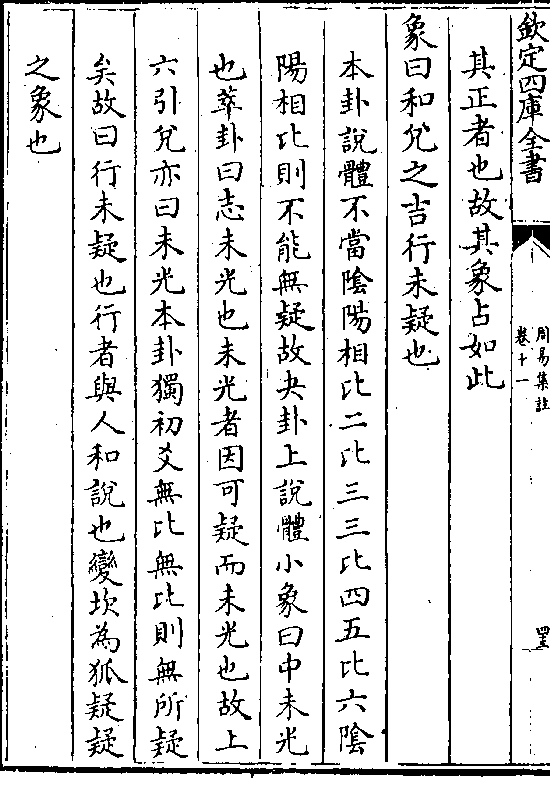 欽定四庫全書
周易集註
卷十一
四三
其正者也故其象占如此
象曰和兌之吉行未疑也
本卦說體不當陰陽相比二比三三比四五比六陰
陽相比則不能無疑故夬卦上說體小象曰中未光
也萃卦曰志未光也未光者因可疑而未光也故上
六引兌亦曰未光本卦獨初爻無比無比則無所疑
矣故曰行未疑也行者與人和說也變坎為狐疑疑
之象也